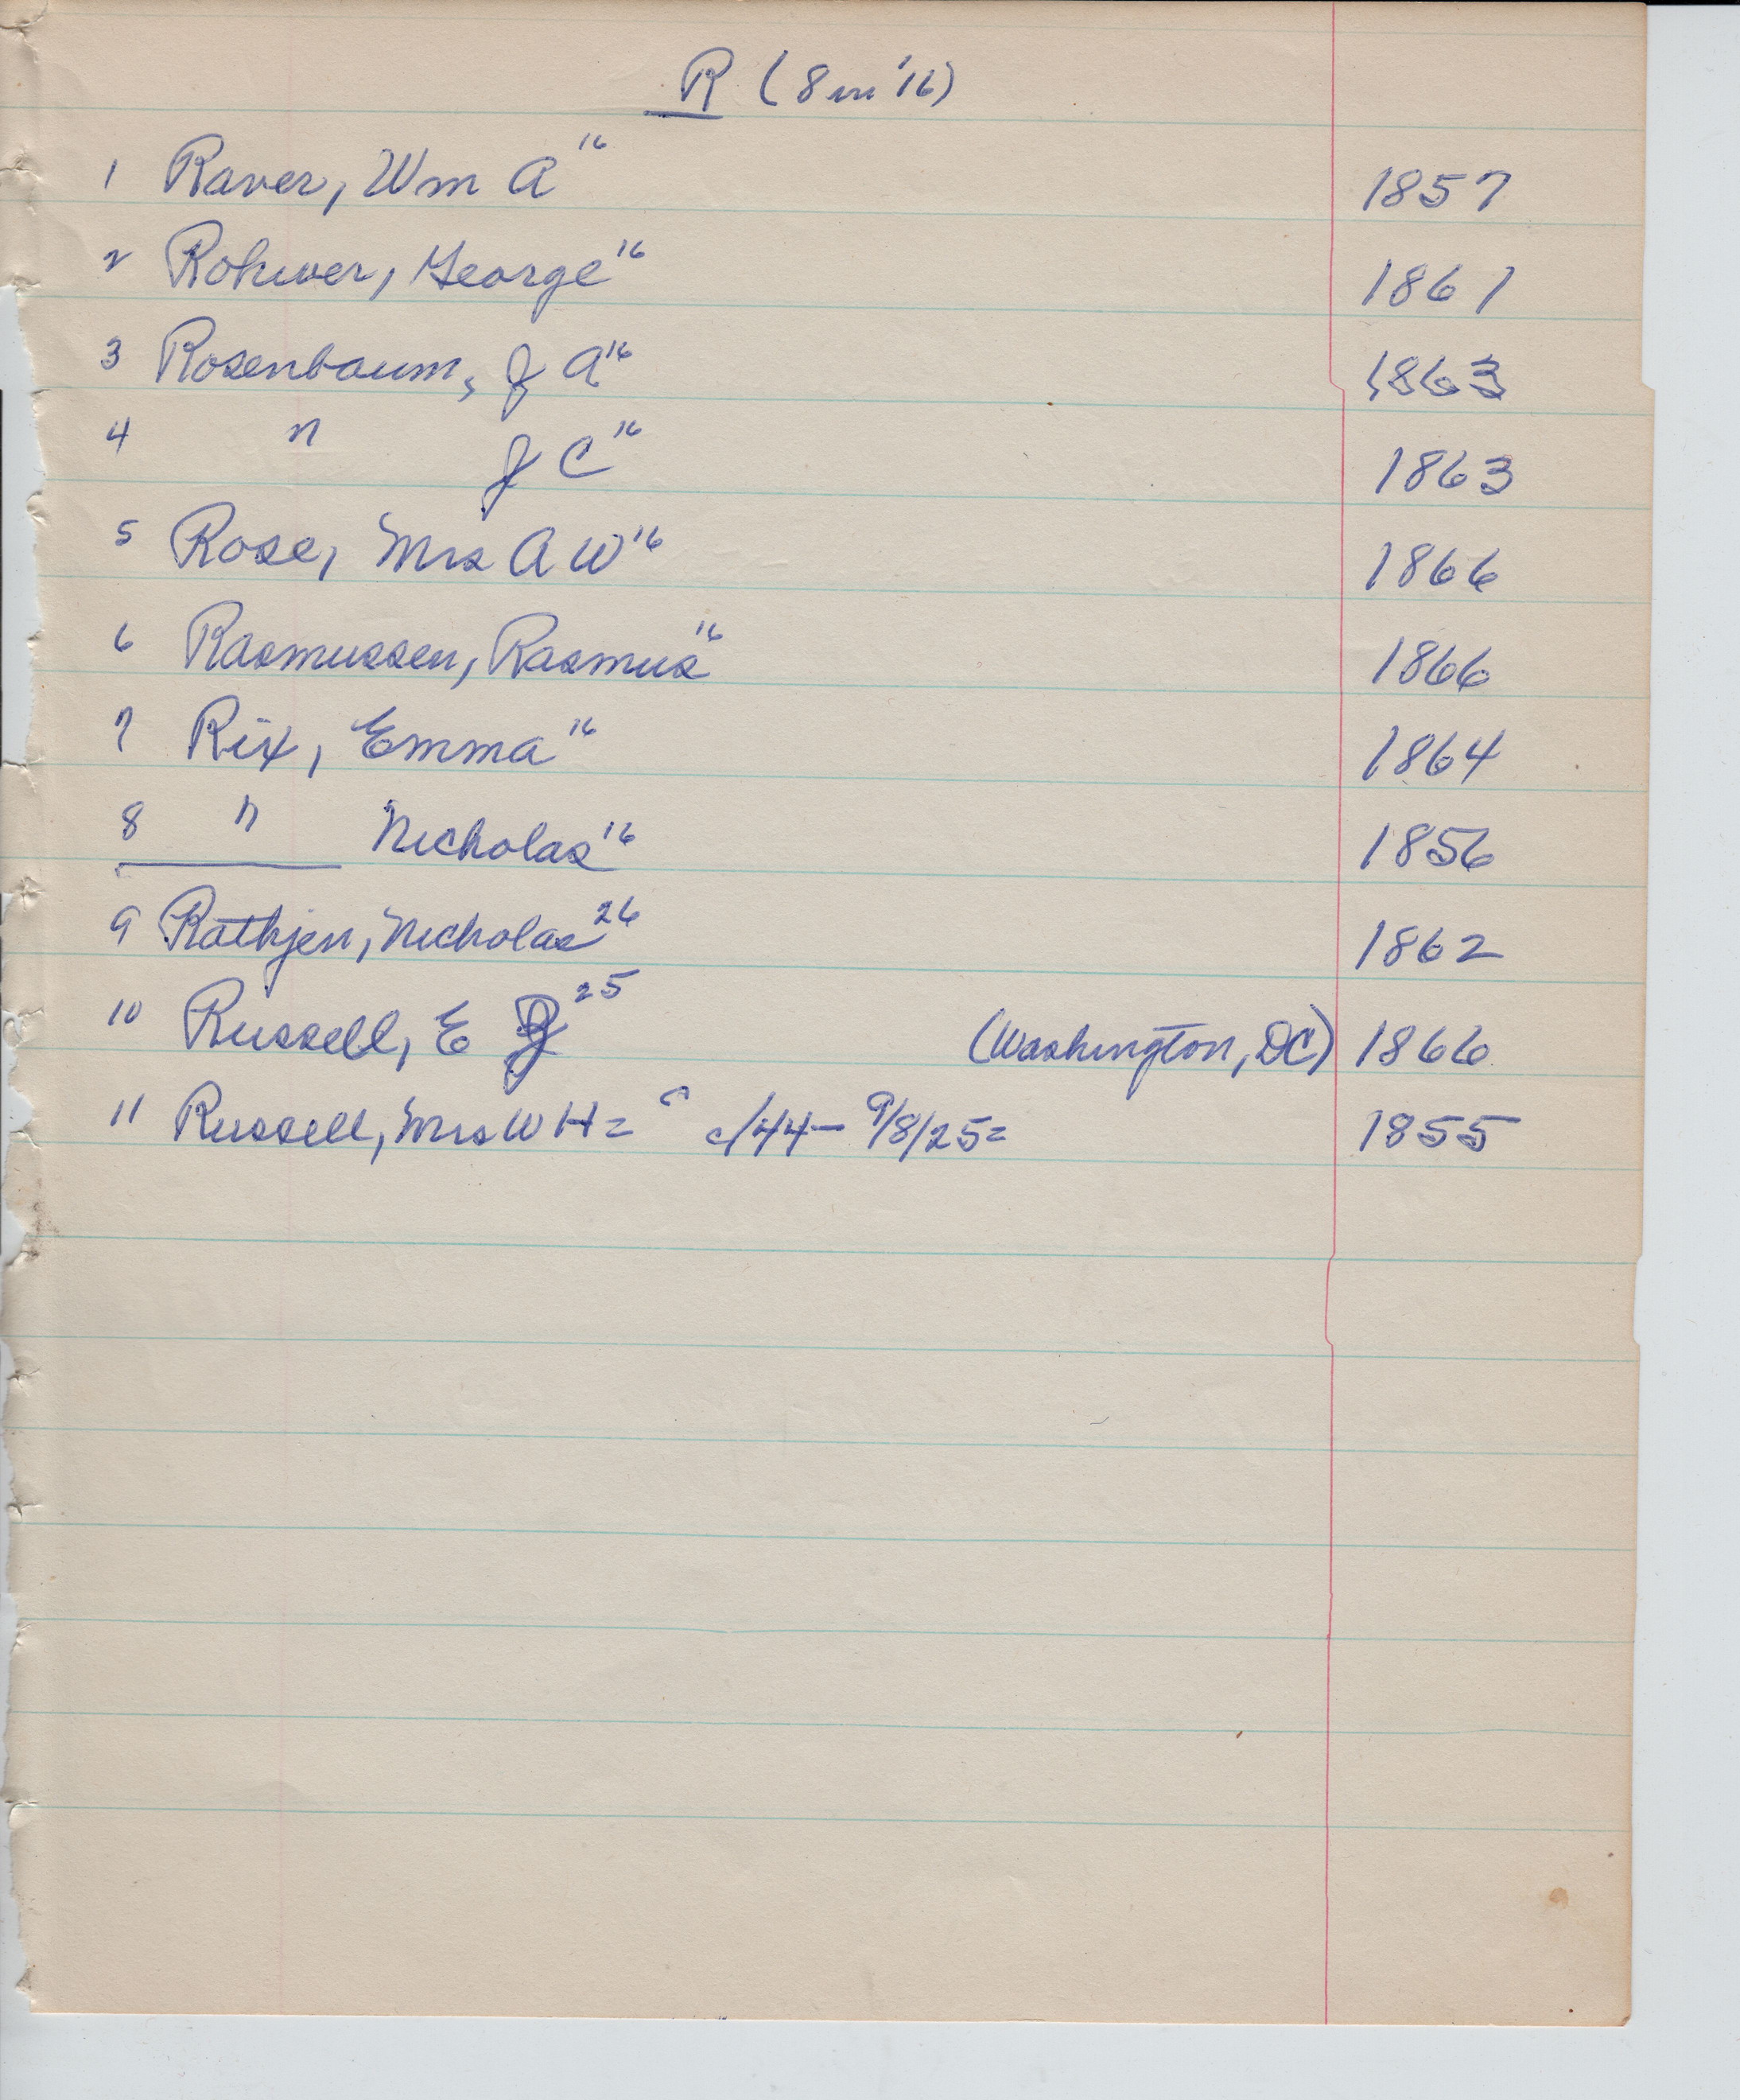 R (8 in '16)
1 Raver, Wm A '16 1857
2 Rohwer, George '16 1861
3 Rosenbaum, J A '16 1863
4 " J C '16 1863
5 Rose, Mrs A W '16 1866
6 Rasmussen, Rasmus '16 1866
7 Rix, Emma '16 1864
8 " Nicholas '16 1856
9 Rathjen, Nicholas 26 1862
10 Russell, E J 25 (Washington, DC) 1866
11 Russell, Mrs W H = c/44 - 9/8/25 = 1855